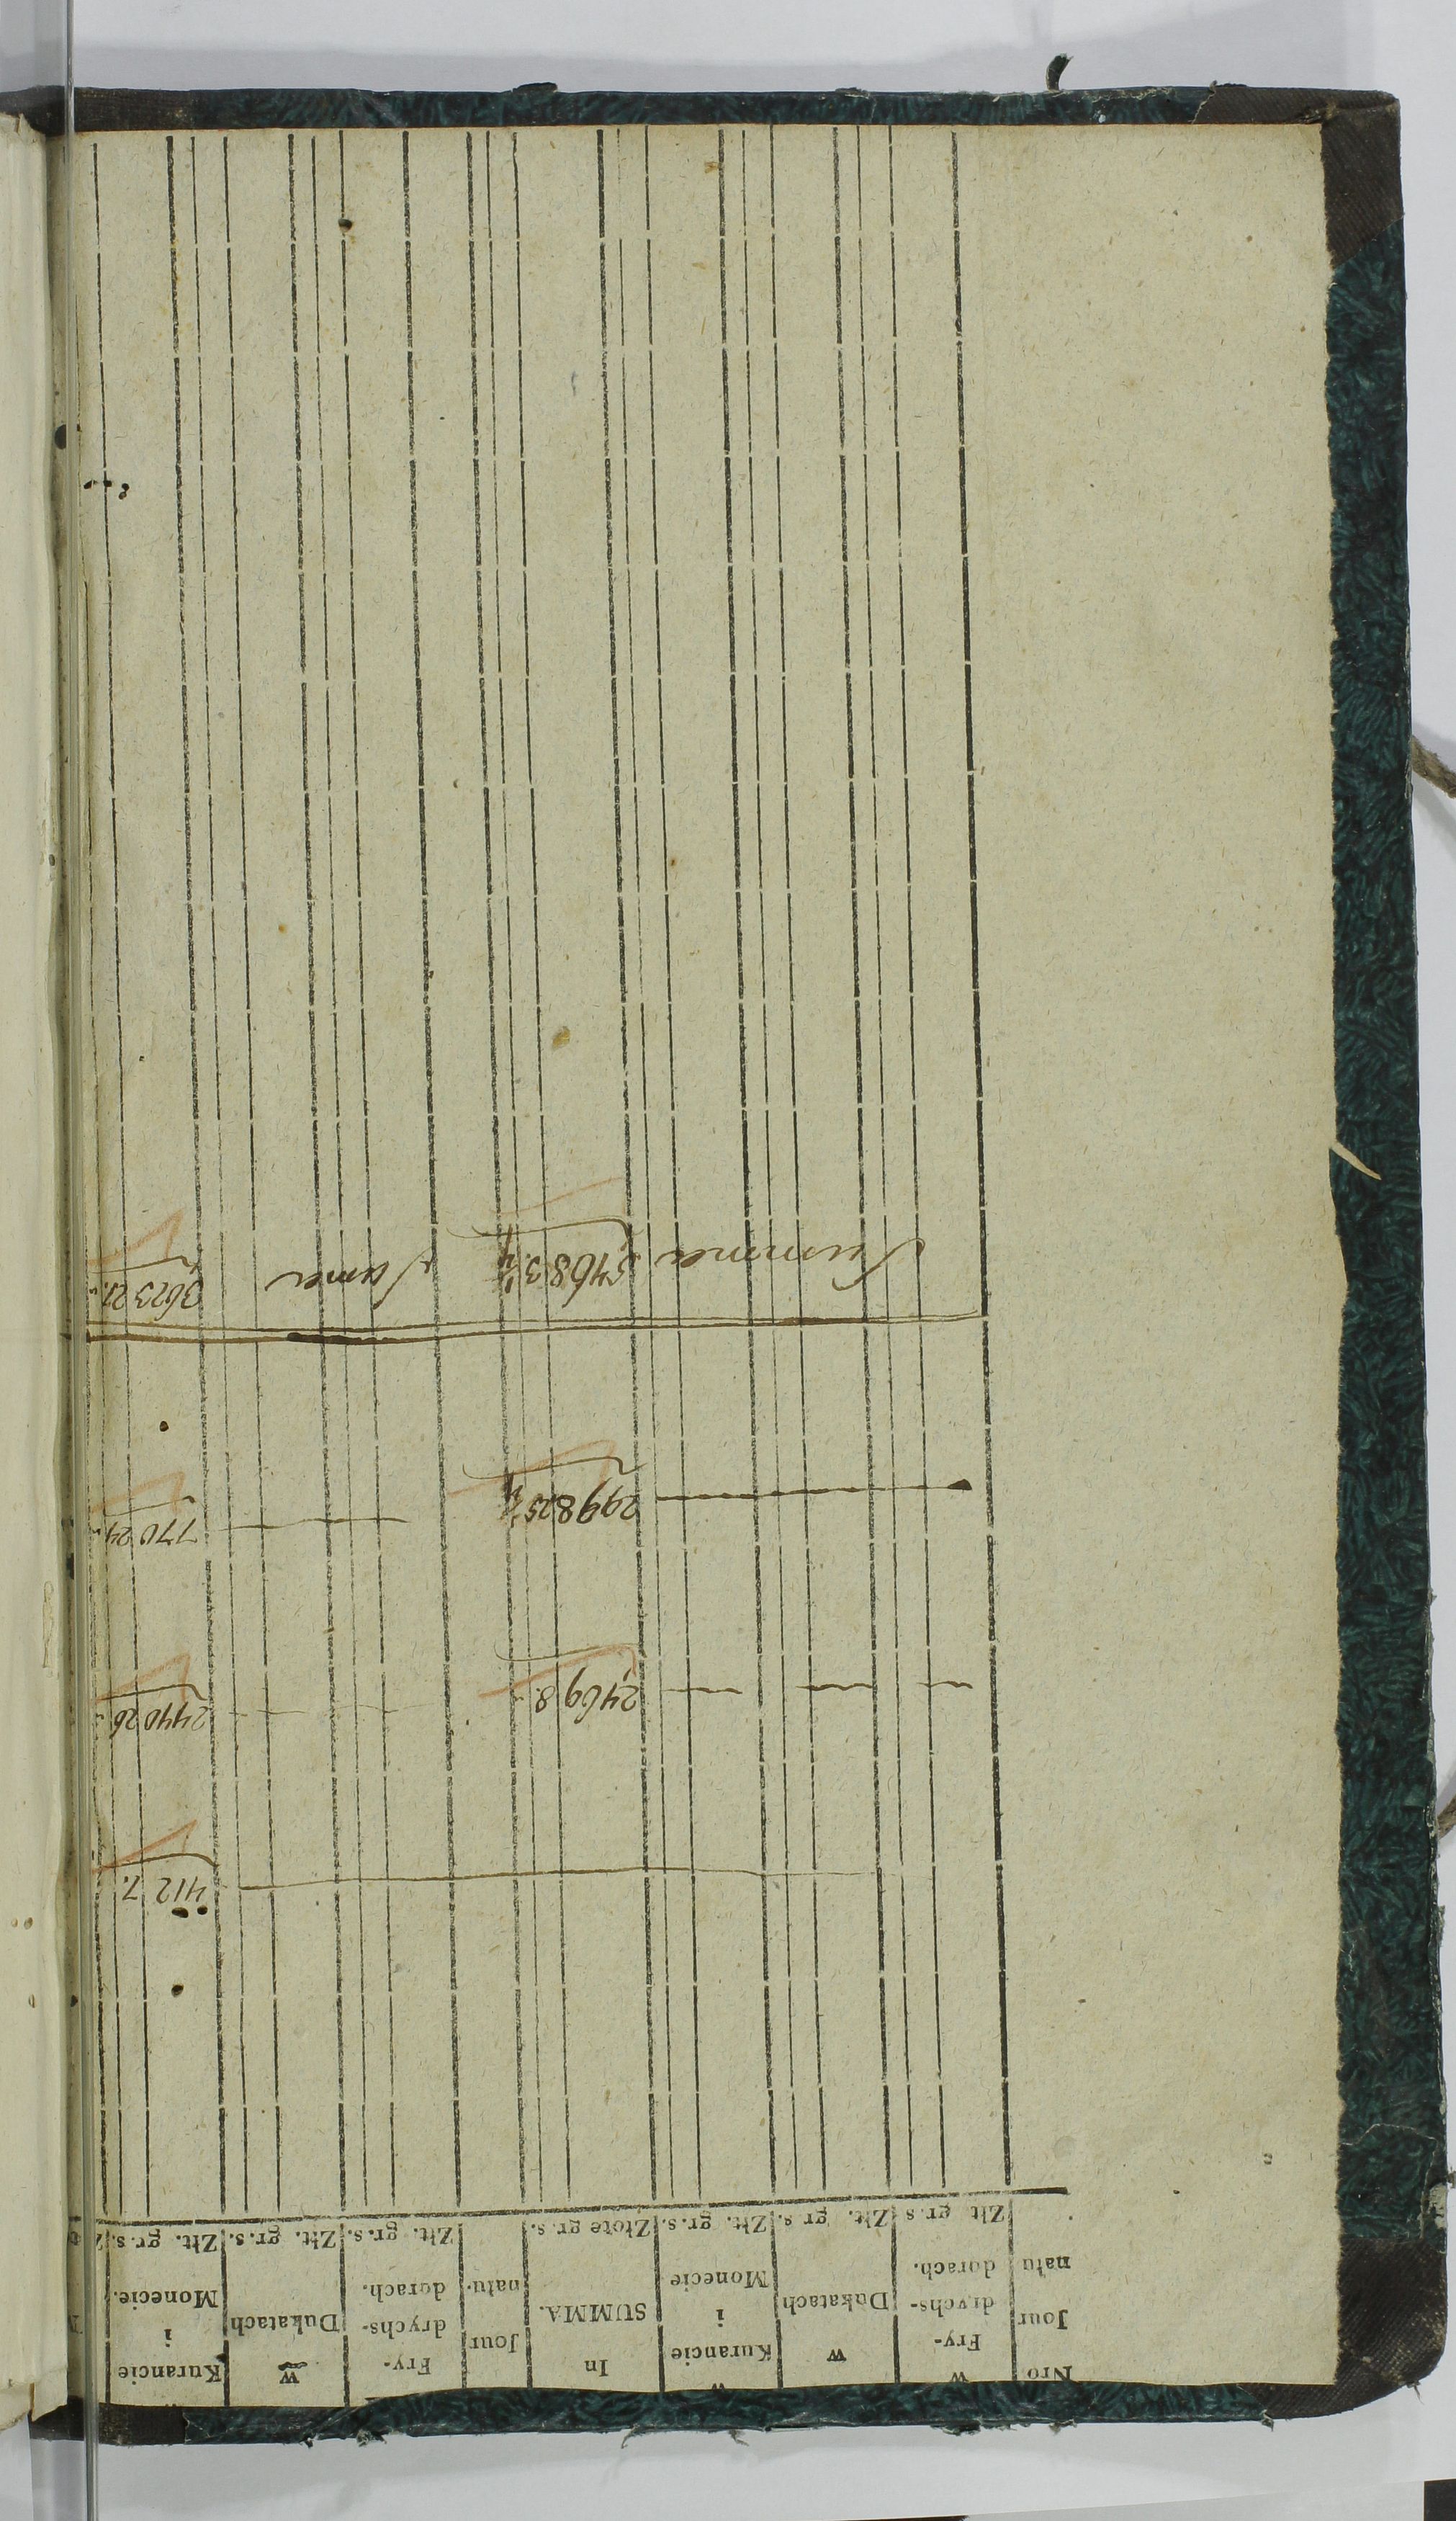 Nro Jour natu
w Fry- drychs- dorach.
w Dukatach
w Kurancie i Monecie
In SUMMA.
Jour natu.
Fry- drychs- dorach.
w Dukatach
Kurancie i Monecie.
Złt gr. s
Złt. gr s.
Złt. gr. s.
Złote gr. s.
Złt. gr. s.
Złt. gr. s.
Złt. gr. s.
412 7.
2469 8. -
2440 26 -
2998 25 ¼
770 24
Summa 5468 3. ¼
Suma 3623 27. -